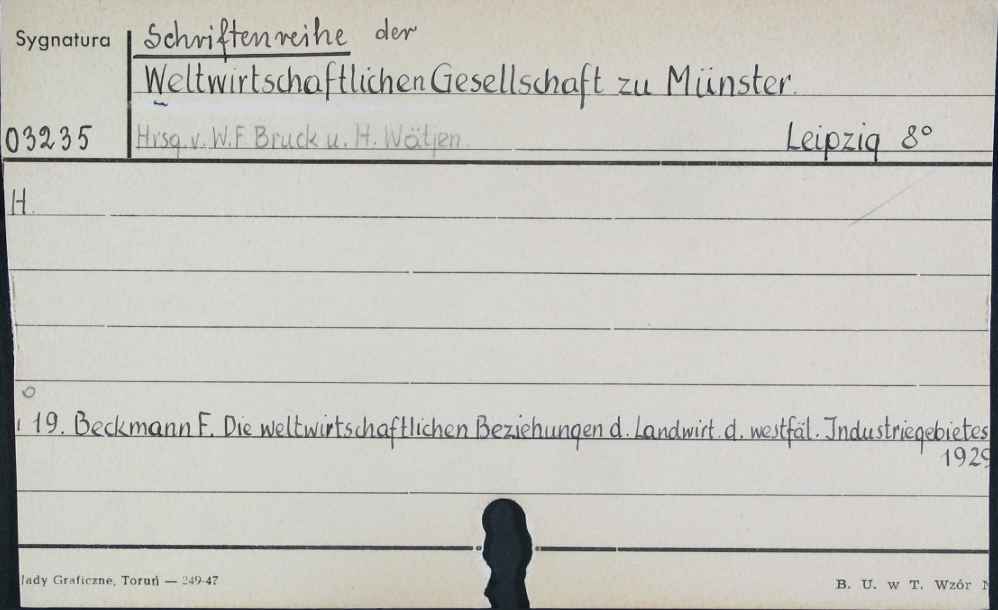 Sygnatura
Schriftenreihe der
Weltwirtschaftlichen Gesellschaft zu Münster.
03235
Hrsg. v. W.F. Bruck u. H. Wätjen.
Leipzig 8°
H.
19. Beckmann F. Die weltwirtschaftlichen Beziehungen d. Landwirt. d. westfäl. Industriegebietes
1929
łady Graficzne, Toruń — 249-47
B. U. w T. Wzór